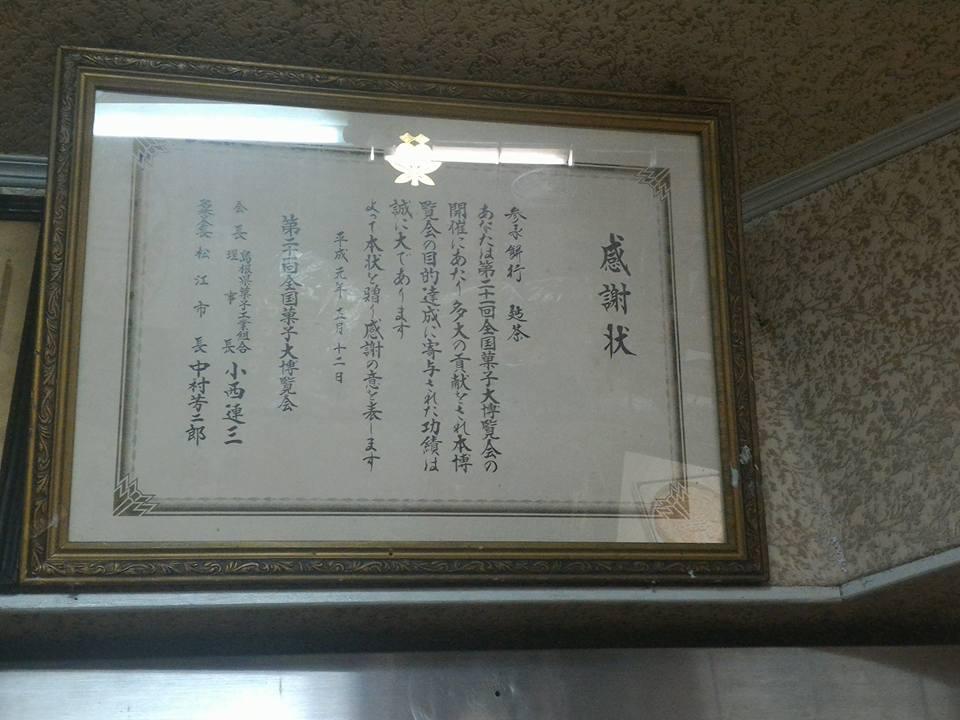 感謝状
参永餅行 趙茶
あなたは第二十一回全国菓子大博覧会の
開催にあたり多大の貢献をされ本博
覧会の目的達成に寄与された功績は
誠に大であります
よって本状を贈り感謝の意を表します
平成元年五月十二日
第二十一回全国菓子大博覧会
会長 島根県菓子工業組合 理事長 小西運三
松江市長 中村芳二郎